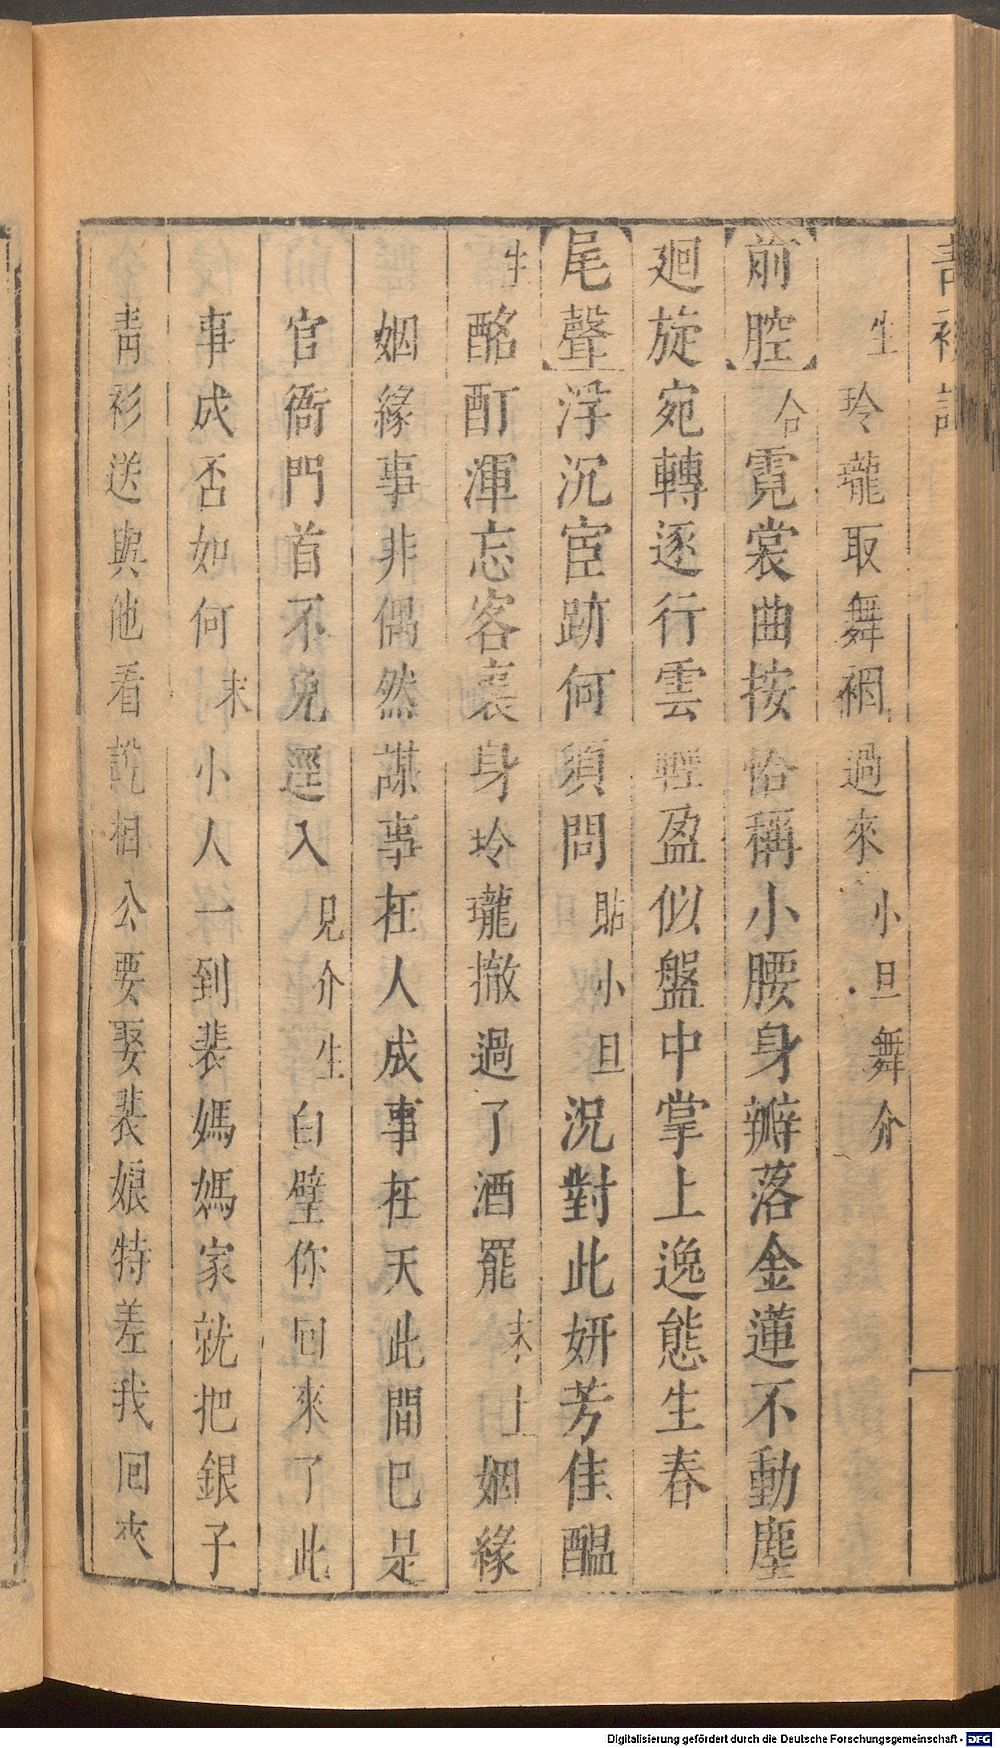 青衫記
生玲瓏取舞裀過來小旦舞介
前腔合霓裳曲按恰稱小腰身瓣落金蓮不動塵
廻旋宛轉逐行雲輕盈似盤中掌上逸態生春
尾聲浮沉宦跡何須問貼小旦況對此妍芳佳醞
生酩酊渾忘客裏身玲瓏撤過了酒罷末上姻緣
姻緣事非偶然謀事在人成事在天此間已是
官衙門首不免逕入見介生白璧你回來了此
事成否如何末小人一到裴媽媽家就把銀子
靑衫送與他看說相公要娶裴娘特差我回來
Digitalisierung gefördert durch die Deutsche Forschungsgemeinschaft - DFG